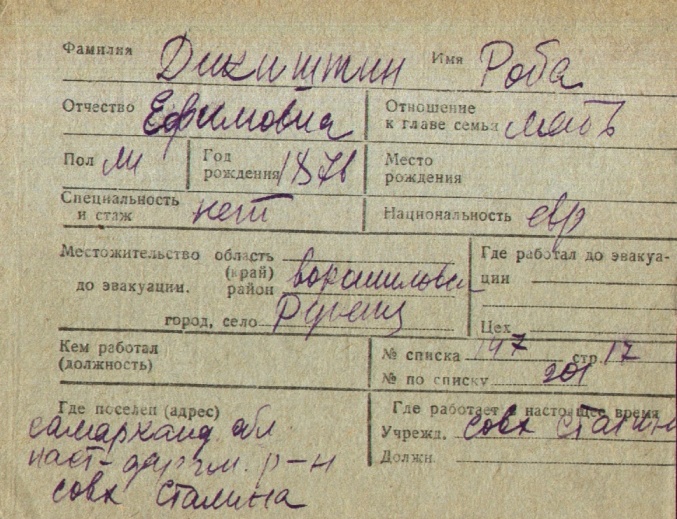 Фамилия Дикиштин Имя Роба
Отчество Ефимовна Отношение к главе семьи мать
Пол Год рождения 1876 Место рождения
Специальность и стаж нет Национальность евр
Местожительство до эвакуации. область (край) район ворошиловск
город, село
Где работал до эвакуации
Цех
Кем работал (должность)
№ списка 147 стр. 17
№ по списку 201
Где поселен (адрес)
самарканд обл
р-н
совх Сталина
Где работает в настоящее время
Учрежд. совх Сталин
Должн.